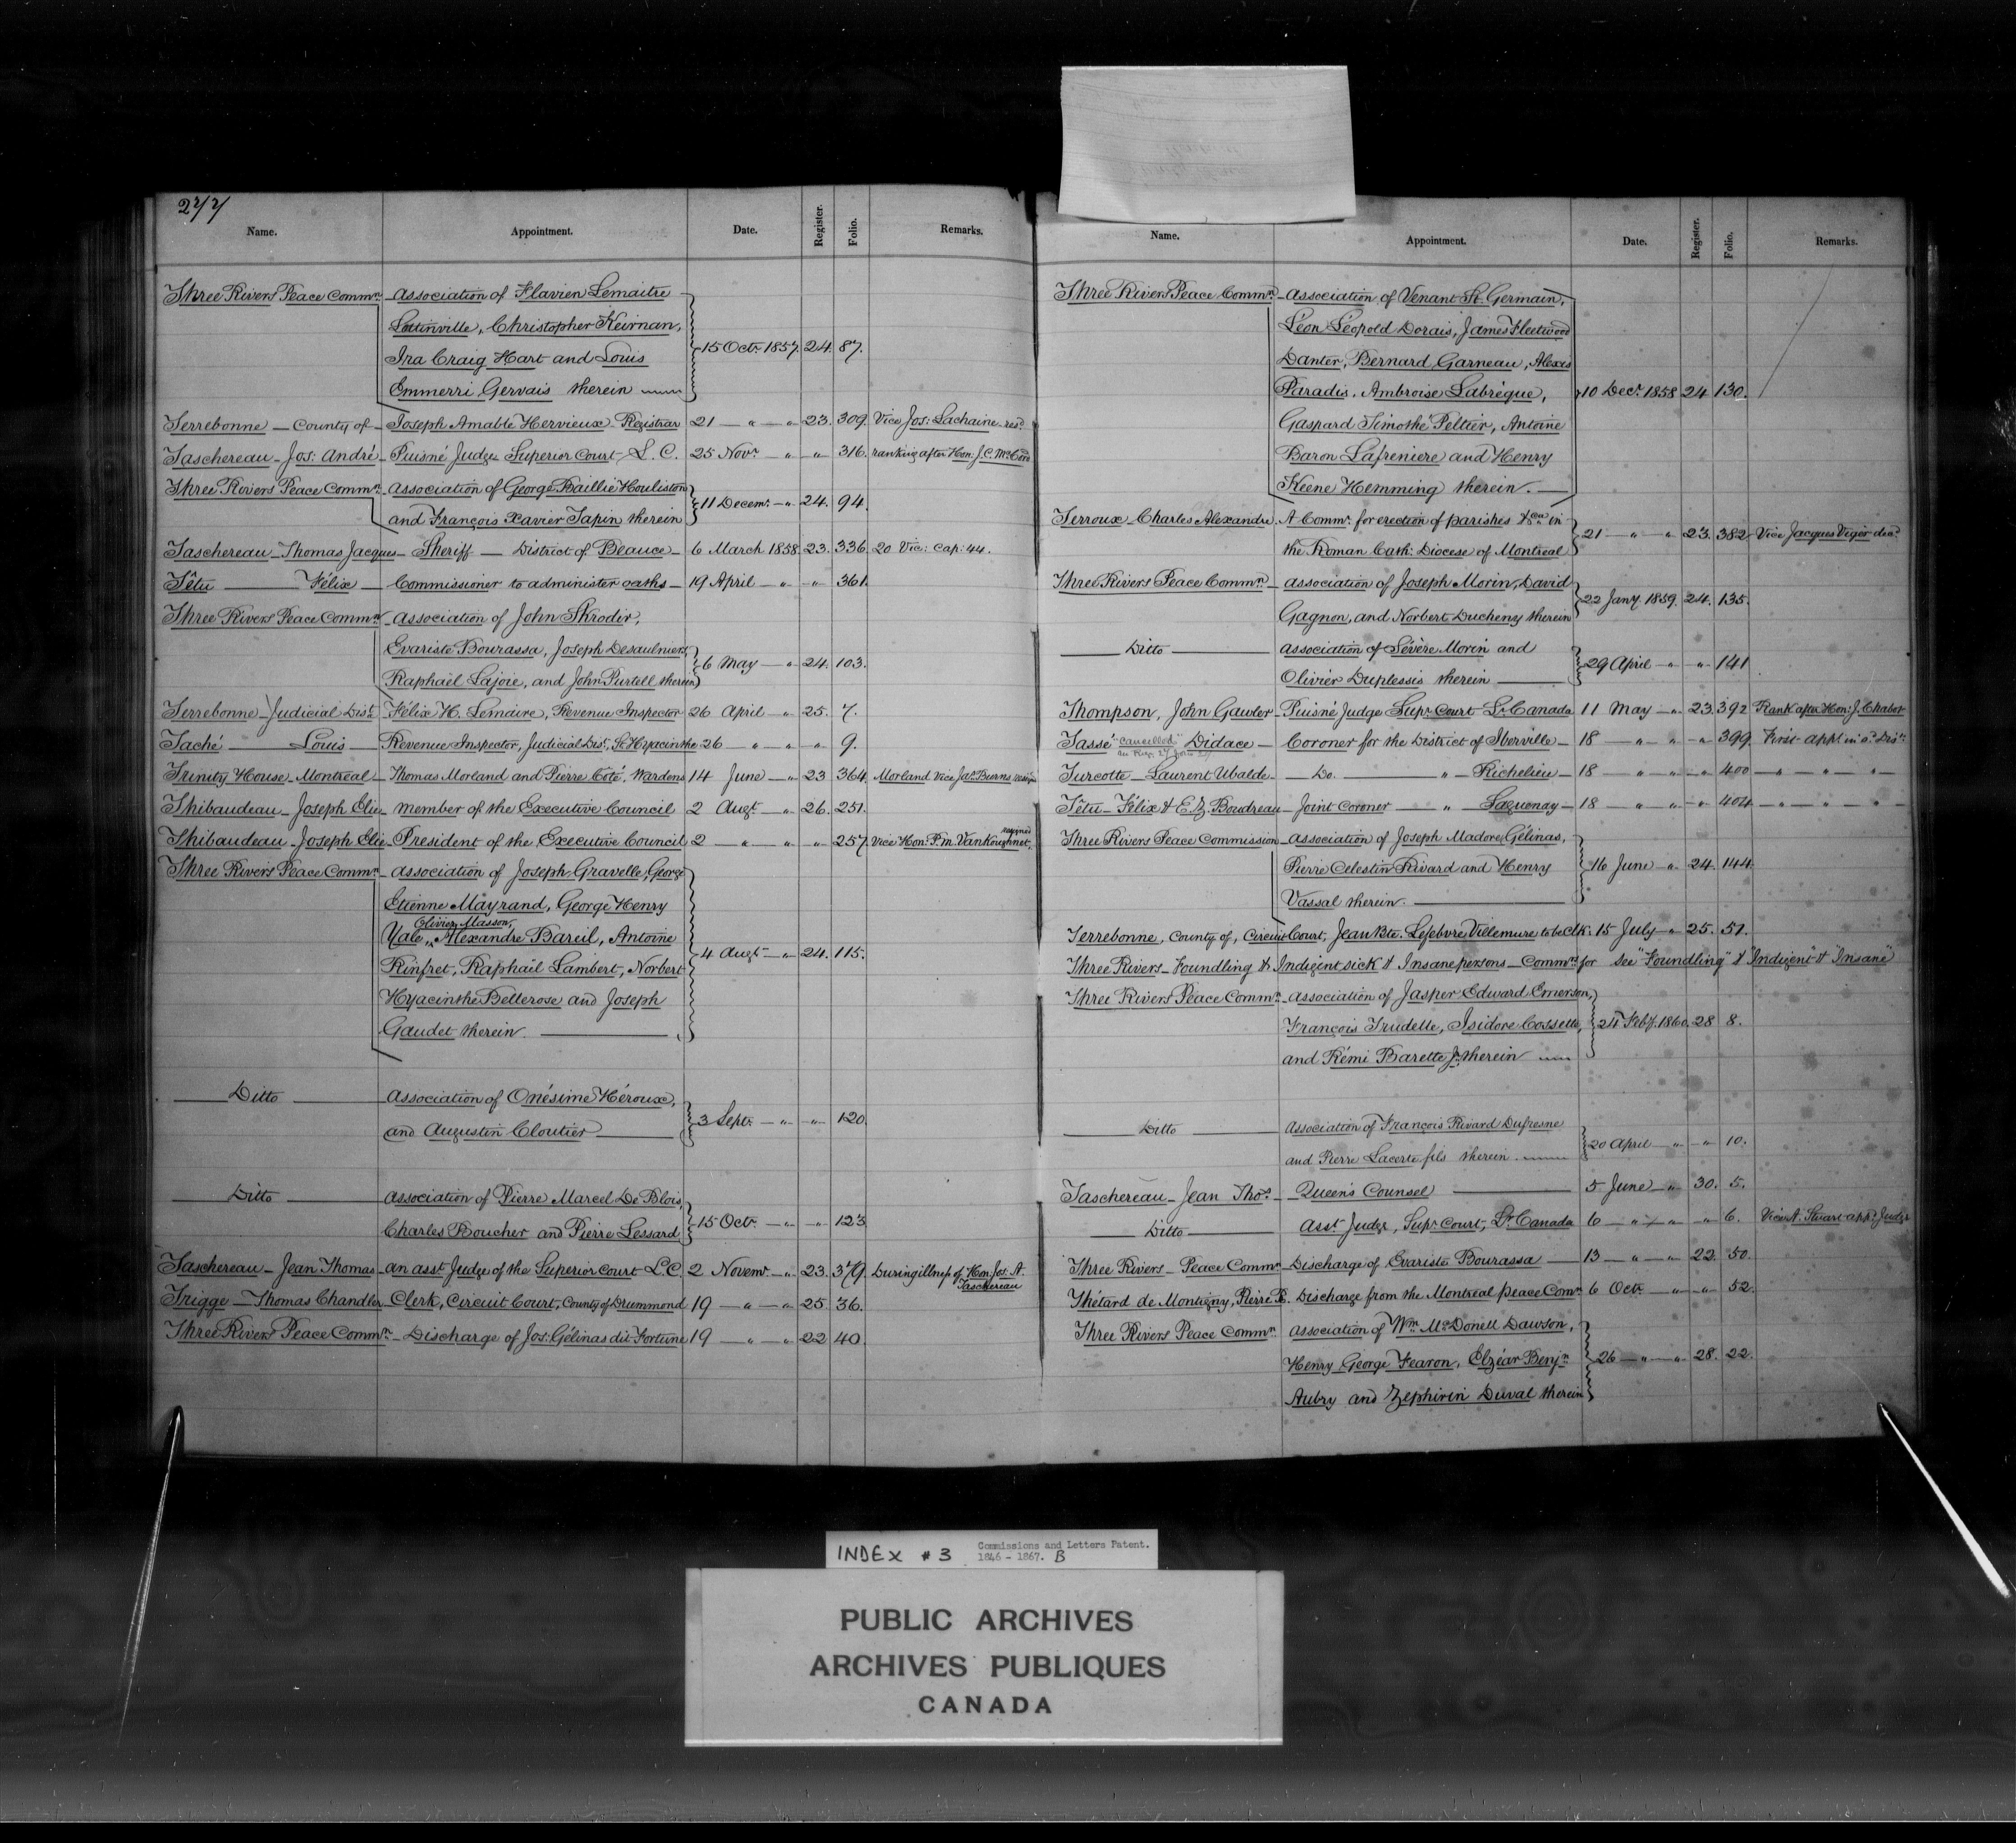 277
Name. Appointment. Date. Register. Folio. Remarks.
Three Rivers Peace Commn. Association of Flavien Lemaitre
Lottinville, Christopher Keirnan,
Ira Craig Hart and Louis 15 Octr. 1857. 24. 87.
Emmerri Gervais therein
Terrebonne — County of — Joseph Amable Hervieux Registrar 21 — " — " — 23. 309. Vice Jos: Lachaine resd.
Taschereau — Jos: André — Puisné Judge Superior Court, L. C. 25 Novr. — " — " — 316. ranking after Hon: J. C.
Three Rivers Peace Commn. Association of George Baillie Houliston
and François Xavier Tapin therein 11 Decemr. — " — 24. 94.
Taschereau — Thomas Jacques — Sheriff — District of Beauce — 6 March 1858 23. 336. 20 Vic: Cap: 44.
Têtu — Félix — Commissioner to administer oaths — 19 April — " — " — 361.
Three Rivers Peace Commn. Association of John Skroder,
Evariste Bourassa, Joseph Desaulniers
Raphaël Lajoie, and John Purtell therein 6 May — " — 24. 103.
Terrebonne — Judicial Dist. Félix H. Lemaire, Revenue Inspector 26 April — " — 25. 7.
Taché — Louis — Revenue Inspector, Judicial Dist. St. Hyacinthe 26 — " — " — " — 9.
Trinity House — Montreal — Thomas Morland and Pierre Coté, Wardens 14 June — " — 23 364. Morland Vice Jas. Burns resigned
Thibaudeau — Joseph Elie — member of the Executive Council 2 Augt. — " — 26. 251.
Thibaudeau — Joseph Elie — President of the Executive Council 2 — " — " — " — 257. Vice Hon. P. M. VanKoughnet, resigned
Three Rivers Peace Commn. Association of Joseph Gravelle, George
Etienne Mayrand, George Henry
Olivier Masson,
Yale, Alexandre Bareil, Antoine 4 Augt. — " — 24. 115.
Rinfret, Raphaël Lambert, Norbert
Hyacinthe Bellerose and Joseph
Gaudet therein.
Ditto Association of Onésime Héroux,
and Augustin Cloutier 3 Sept. — " — " — 120.
Ditto Association of Pierre Marcel De Blois,
Charles Boucher and Pierre Lessard 15 Octr. — " — " — 123.
Taschereau — Jean Thomas — an asst. Judge of the Superior Court L.C. 2 Novemr. — " — 23. 379. During illness of Hon. Jos. A. Taschereau
Trigge — Thomas Chandler — Clerk, Circuit Court, County of Drummond 19 — " — " — 25. 36.
Three Rivers Peace Commn. — Discharge of Jos: Gélinas dit Fortune 19 — " — " — 22 40.
Name. Appointment. Date. Register. Folio. Remarks.
Three Rivers Peace Commn. Association of Venant St. Germain,
Léon Léopold Dorais, James Fleetwood
Danter, Bernard Garneau, Alexis
Paradis, Ambroise Labrèque, 10 Decr. 1858 24 130.
Gaspard Timothé Peltier, Antoine
Baron Lafreniere and Henry
Keene Hemming therein.
Terroux — Charles Alexandre. A Commr. for erection of parishes &ca in
the Roman Cath: Diocese of Montreal 21 — " — " 23. 382 Vice Jacques Viger decd.
Three Rivers Peace Commn. — Association of Joseph Morin, David
Gagnon, and Norbert Ducheny therein 22 Jany. 1859. 24. 135.
Ditto Association of Sévère Morin and
Olivier Duplessis therein 29 April — " — " — 141
Thompson, John Gawler — Puisné Judge Supr. Court Lr. Canada 11 May — " — 23. 392 Rank after Hon: J. Chabot
Tassé "cancelled" Didace — Coroner for the District of Iberville — 18 — " — " — 399. First appt. in sd. Distt.
Turcotte — Laurent Ubalde — Do. — " — Richelieu — 18 — " — " — " — 400 — " — " — " —
Têtu — Félix & E. Z. Boudreau — Joint Coroner — " — Saguenay — 18 — " — " — " — 404 — " — " — " —
Three Rivers Peace Commission — Association of Joseph Madore Gélinas,
Pierre Celestin Rivard and Henry 16 June — " — 24. 144
Vassal therein.
Terrebonne, County of, Circuit Court, Jean Bte. Lefebvre Villemure to be Clk: 15 July — " 25. 51.
Three Rivers — Foundling & Indigent sick & Insane persons — Commrs. for see "Foundling" & "Indigent" & "Insane"
Three Rivers Peace Commn. — Association of Jasper Edward Emerson,
François Trudelle, Isidore Cossette, 24 Feby. 1860. 28 8.
and Rémi Barette Jr. therein
Ditto Association of François Rivard Dufresne
and Pierre Lacerte fils therein. 20 April — " — " — 10.
Taschereau — Jean Thos. — Queen's Counsel 5 June — " 30. 5.
Ditto Asst. Judge, Supr. Court, Lr. Canada 6 — " — " — " — 6. Vice A. Stuart appd. Judge
Three Rivers — Peace Commn. — Discharge of Evariste Bourassa — 13 — " — " — 22. 50.
Thétard de Montigny, Pierre B. Discharge from the Montreal peace Comn. 6 Octr. — " — " — 52.
Three Rivers Peace Commn. Association of Wm. McDonell Dawson,
Henry George Fearon, Elzéar Benjn. 26 — " — " — 28. 22.
Aubry and Zephirin Duval therein
INDEX # 3 Commissions and Letters Patent.
1846 - 1867. B
PUBLIC ARCHIVES
ARCHIVES PUBLIQUES
CANADA